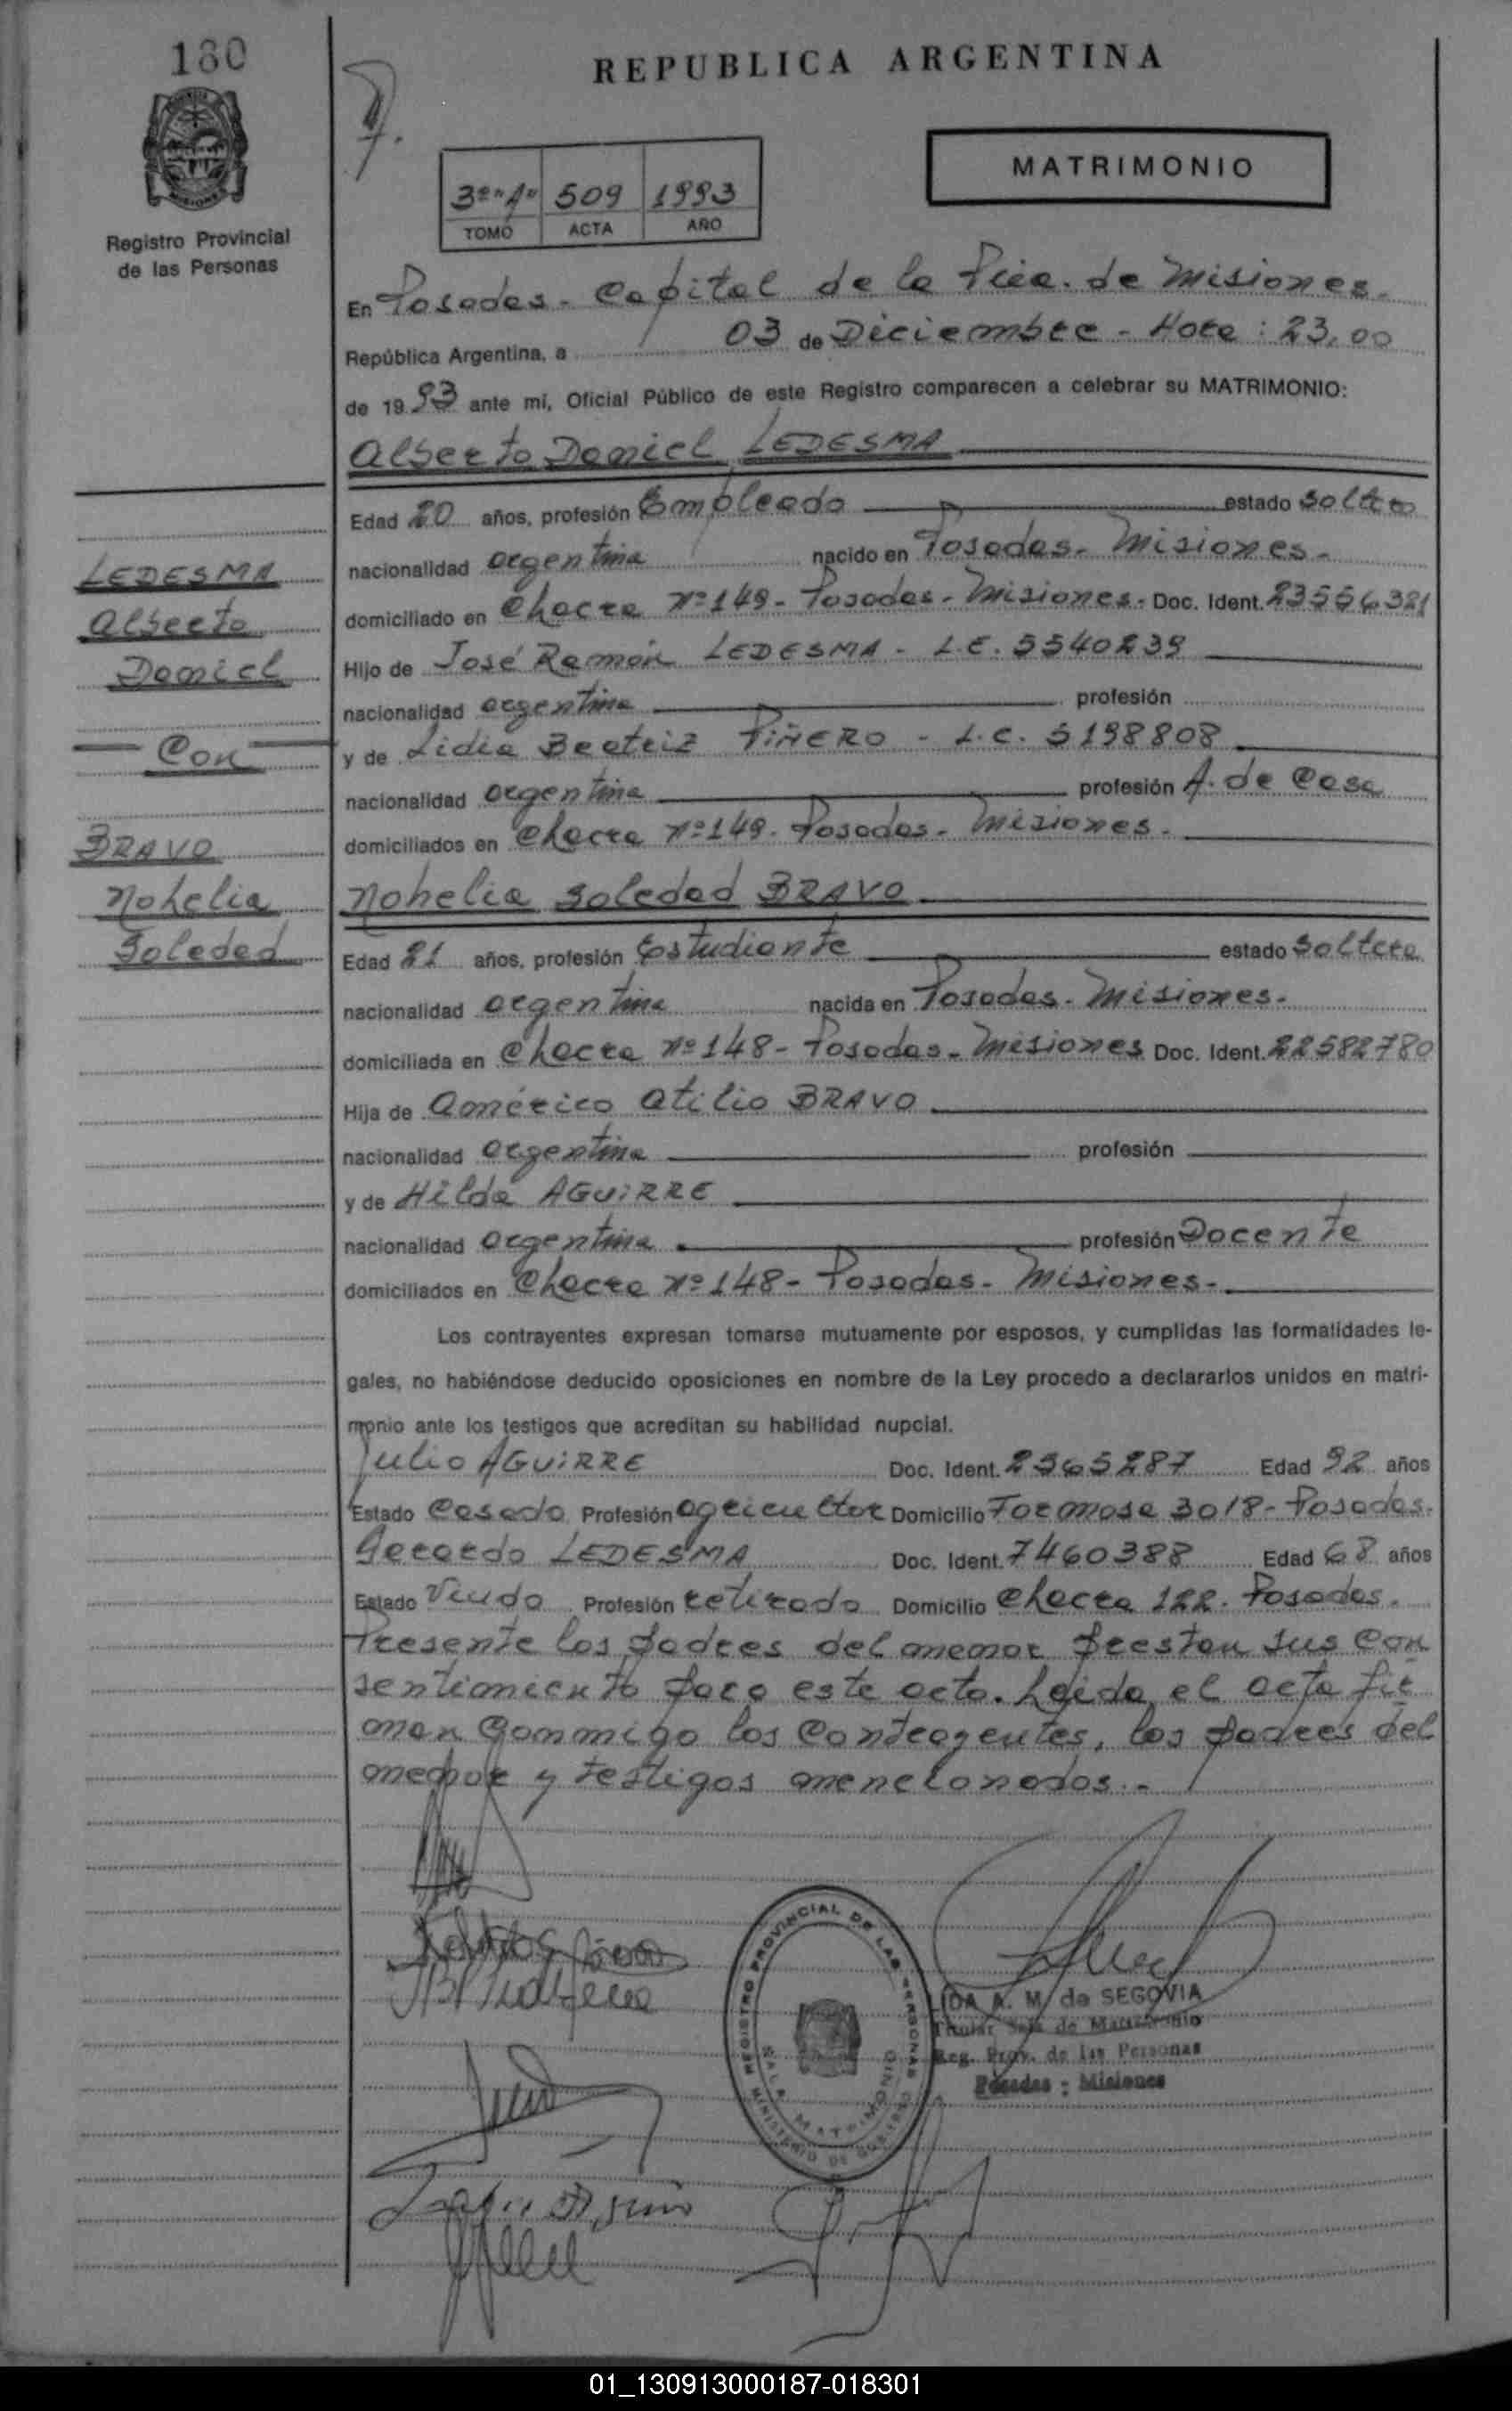 180
REPUBLICA ARGENTINA
MATRIMONIO
3º "A" 509 1993
TOMO ACTA AÑO
Registro Provincial
de las Personas
En Posadas - Capital de la Pcia. de Misiones.
República Argentina, a 03 de Diciembre - Hora: 23,00
de 1993 ante mí, Oficial Público de este Registro comparecen a celebrar su MATRIMONIO:
Alberto Daniel LEDESMA
Edad 20 años, profesión Empleado estado Soltero
nacionalidad argentina nacido en Posadas - Misiones -
domiciliado en Chacra Nº 149 - Posadas - Misiones - Doc. Ident. 23556321
Hijo de José Ramón LEDESMA - L.E. 5540239
nacionalidad argentina profesión
y de Lidia Beatriz PIÑERO - L.C. 5198808
nacionalidad argentina profesión A. de Casa
domiciliados en Chacra Nº 149 - Posadas - Misiones -
LEDESMA
Alberto
Daniel
Con
BRAVO
Nohelia
Soledad
Nohelia Soledad BRAVO
Edad 21 años, profesión Estudiante estado Soltera
nacionalidad argentina nacida en Posadas - Misiones -
domiciliada en Chacra Nº 148 - Posadas - Misiones Doc. Ident. 22582780
Hija de Américo Atilio BRAVO
nacionalidad argentina profesión
y de Hilda AGUIRRE
nacionalidad argentina profesión Docente
domiciliados en Chacra Nº 148 - Posadas - Misiones -
Los contrayentes expresan tomarse mutuamente por esposos, y cumplidas las formalidades le-
gales, no habiéndose deducido oposiciones en nombre de la Ley procedo a declararlos unidos en matri-
monio ante los testigos que acreditan su habilidad nupcial.
Julio AGUIRRE Doc. Ident. 2365287 Edad 92 años
Estado Casado Profesión agricultor Domicilio Formosa 3018 - Posadas.
Gerardo LEDESMA Doc. Ident. 7460388 Edad 68 años
Estado Viudo Profesión retirado Domicilio Chacra 122 - Posadas.
Presente los padres del menor prestan sus con
sentimiento para este acto. Leida el acta fir
man conmmigo los contrayentes, los padres del
menor y testigos mencionados. -
REGISTRO PROVINCIAL DE LAS PERSONAS
SALA MATRIMONIO
MINISTERIO DE GOBIERNO
IDA A. M. de SEGOVIA
Titular Sala de Matrimonio
Reg. Prov. de las Personas
Posadas - Misiones
01_130913000187-018301